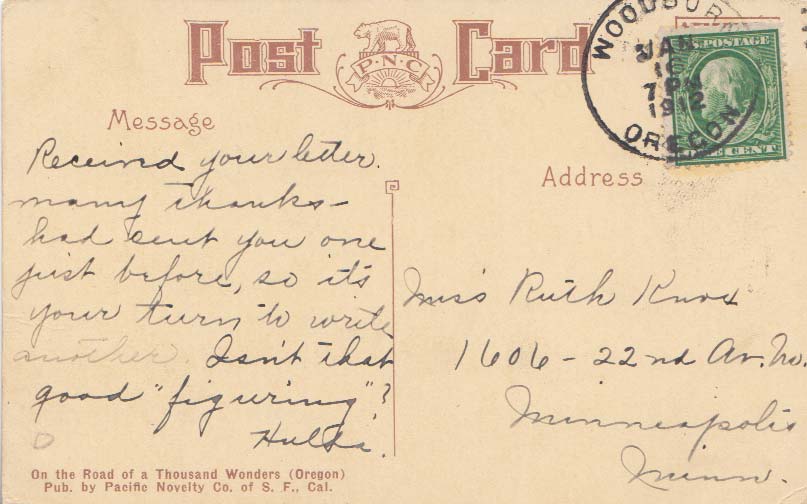 Post Card
P·N·C
WOODBURN
JAN
16
7 PM
1912
OREGON
U.S. POSTAGE
ONE CENT
Message
Received your letter.
many thanks –
had sent you one
just before, so it's
your turn to write
another. Isn't that
good "figuring"?
Hulda.
Address
Miss Ruth Knox
1606 – 22nd Av. No.
Minneapolis
Minn.
On the Road of a Thousand Wonders (Oregon)
Pub. by Pacific Novelty Co. of S. F., Cal.